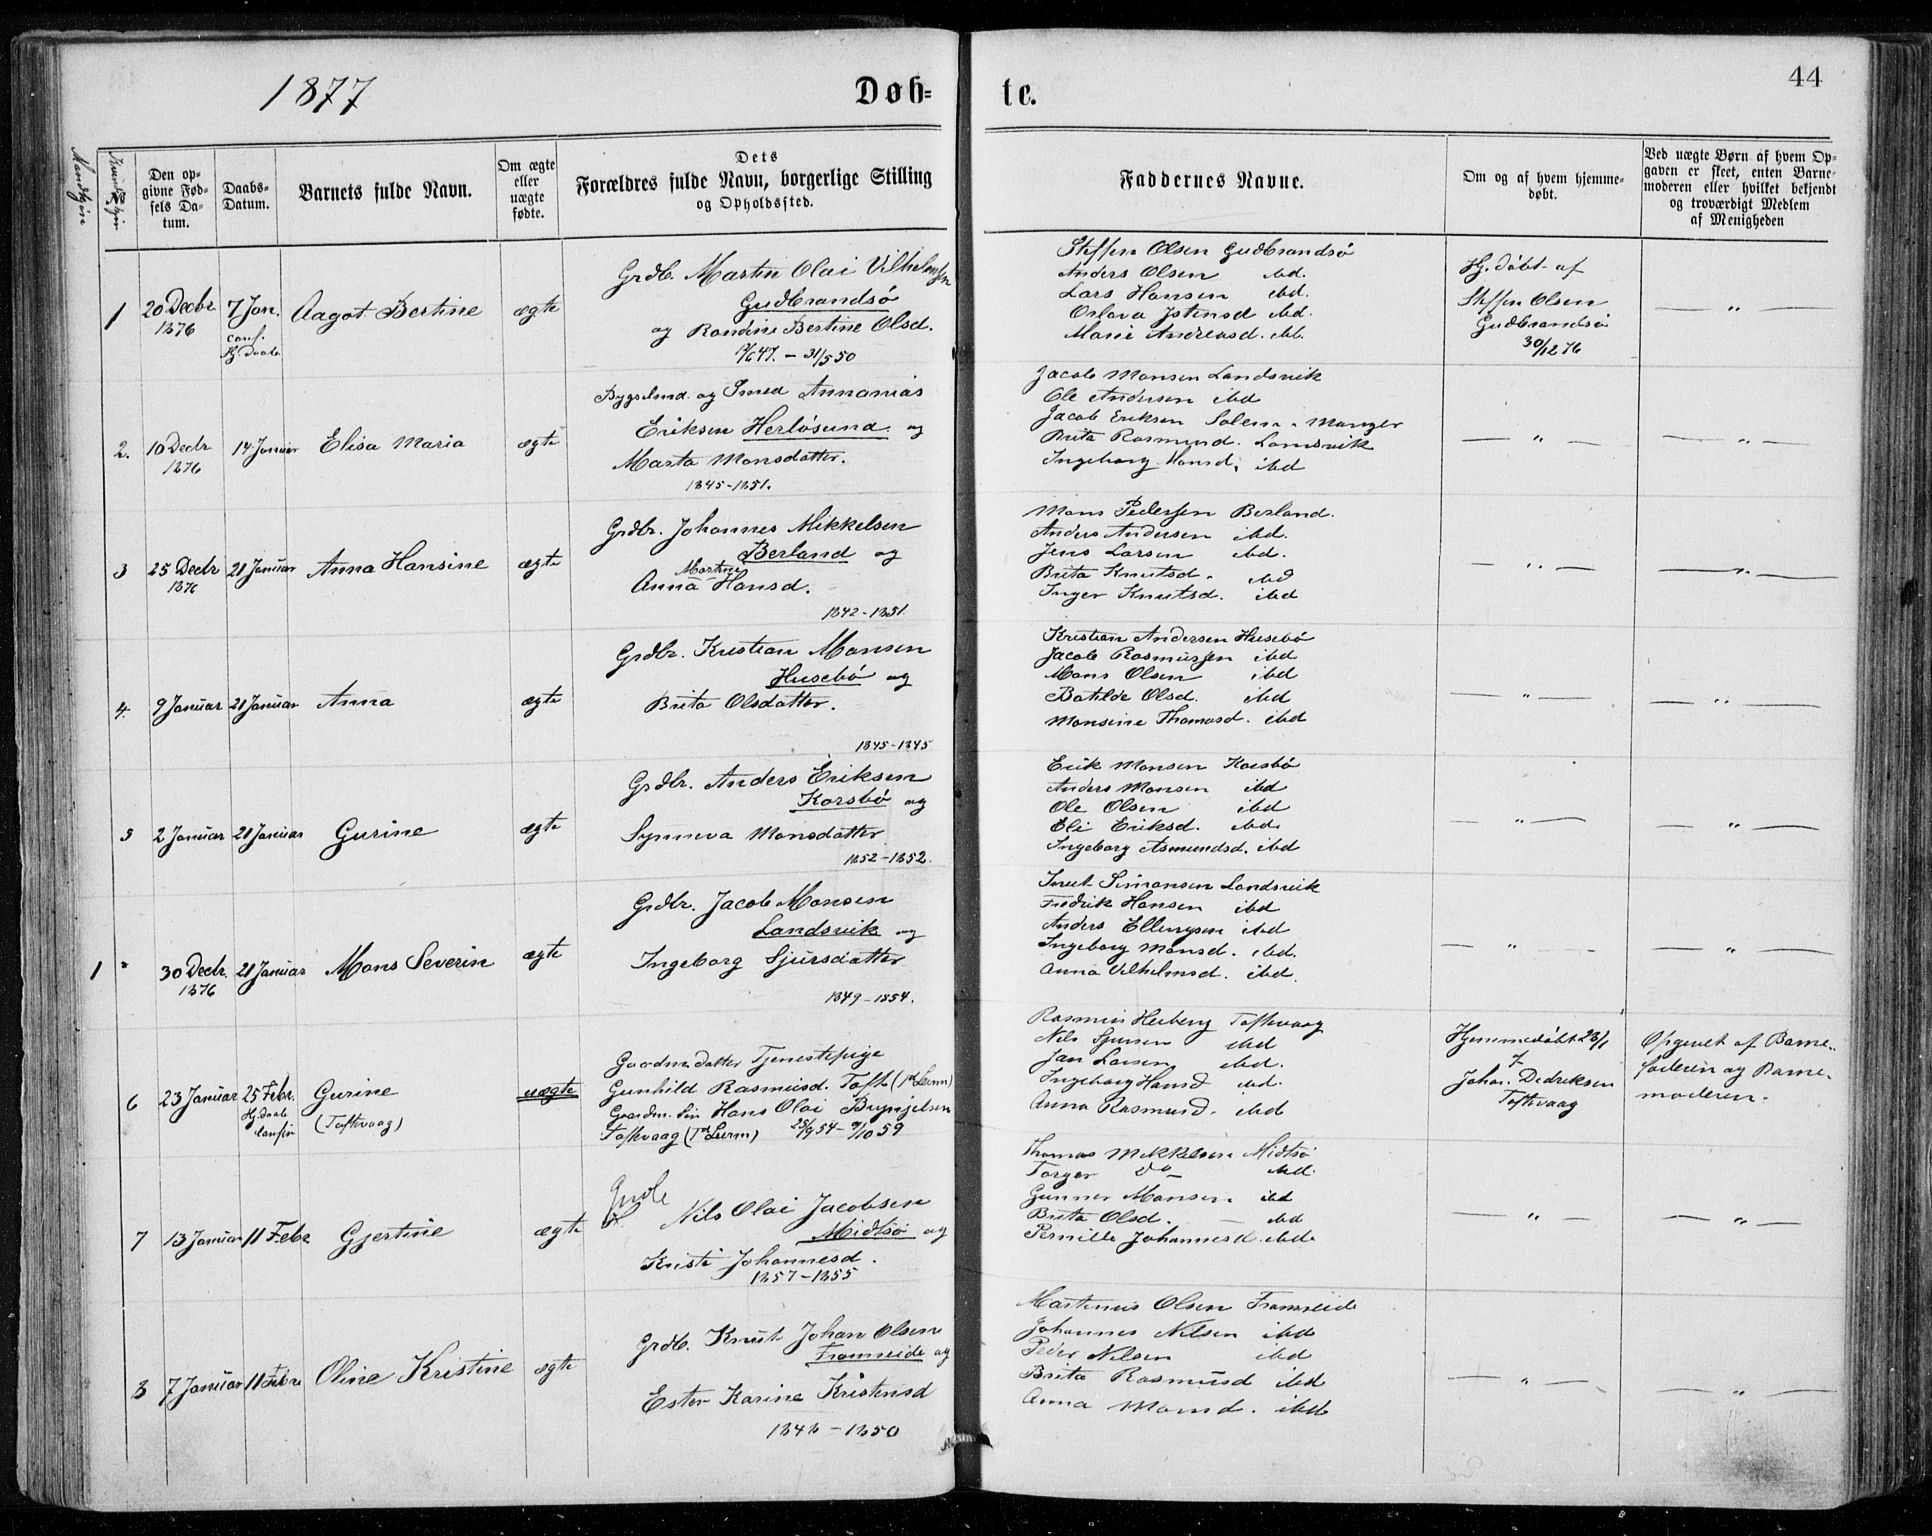 1877
Døb=
te.
44
Mandkjøn
Kvindekjøn
Den op-
givne Fød-
sels Da-
tum.
Daabs-
Datum.
Barnets fulde Navn.
Om ægte
eller
uægte
fødte.
Dets
Forældres fulde Navn, borgerlige Stilling
og Opholdssted.
Faddernes Navne.
Om og af hvem hjemme-
døbt.
Ved uægte Børn af hvem Op-
gaven er skeet, enten Barne-
moderen eller hvilket bekjendt
og troværdigt Medlem
af Menigheden
1 20 Decbr 1876
7 Jan. conf. Hj. daab
Aagot Bertine
ægte
Grdb. Martin Olai Vilhelmsen
Gudbrandsø
og Randine Bertine Olsd.
47. – 31/5 50
Steffen Olsen Gudbrandsø
Anders Olsen ibd.
Lars Hansen ibd.
Orlava Istensd ibd.
Marie Andreasd. ibd.
Hj. døbt af
Steffen Olsen
Gudbrandsø
30/12 76
— „ —
2. 10 Decbr 1876
14 Januar
Elisa Maria
ægte
Bygselmd. og Smed Annanias
Eriksen Herløsund og
Marta Monsdatter.
1845–1851.
Jacob Monsen Landsvik
Ole Andersen ibd
Jacob Eriksen Solem Manger
Brita Rasmusd. Landsvik
Ingeborg Hansd. ibd
— „ —
— „ —
3 25 Decbr 1876
21 Januar
Anna Hansine
ægte
Grdbr. Johannes Mikkelsen
Berland og
Martine
Anna Hansd.
1842–1851.
Mons Pedersen Berland.
Anders Andersen ibd.
Jens Larsen ibd.
Brita Knutsd. ibd
Inger Knutsd. ibd
— „ —
— „ —
4. 9 Januar
21 Januar
Anna
ægte
Grdbr. Kristian Monsen
Husebø og
Brita Olsdatter.
1845–1845
Kristian Andersen Husebø
Jacob Rasmussen ibd
Mons Olsen ibd
Batilde Olsd. ibd
Monsine Thomasd. ibd
— „ —
— „ —
5 2 Januar
21 Januar
Gurine
ægte
Grdbr. Anders Eriksen
Korsbø og
Synneva Monsdatter
1852–1852.
Erik Monsen Korsbø
Anders Monsen ibd
Ole Olsen ibd
Eli Eriksd. ibd
Ingeborg Asmundsd. ibd
— „ —
— „ —
1 „ 30 Decbr. 1876
21 Januar
Mons Severin
ægte
Grdbr. Jacob Monsen
Landsvik og
Ingeborg Sjursdatter
1849–1854.
Knut Simonsen Landsvik
Fredrik Hansen ibd
Anders Ellingsen ibd
Ingeborg Monsd. ibd.
Anna Vilhelmsd. ibd.
— „ —
— „ —
6 23 Januar
25 Febr. Hj. daab confir
Gurine
(Toftevaag)
uægte
Gaardm datter Tjenestepige
Gunhild Rasmusd. Toft
Gaardm. Søn Hans Olai Brynjelsen
Toftevaag 25/9 54 – 9/10 59
Rasmus Herberg Toftevaag
Nils Sjursen ibd
Jan Larsen ibd.
Ingeborg Hansd ibd.
Anna Rasmusd. ibd
Hjemmedøbt 23/1
af
Johan. Dedriksen
Toftevaag
Opgivet af Barne-
faderen og Barne-
moderen.
7 13 Januar
11 Febr
Gjertine
ægte
Nils Olai Jacobsen
Midtsø og
Kristi Johannesd.
1857–1855
Thomas Mikkelsen Midtsø
Torger do ibd.
Gunner Monsen ibd
Brita Olsd. — ibd
Pernille Johannesd. ibd
— „ —
— „ —
8 7 Januar
11 Febr
Oline Kristine
ægte
Grdb. Knut Johan Olsen
Fromreide og
Ester Karine Kristensd
1848–1850
Martinus Olsen Fromreide
Johannes Nilsen ibd
Peder Nilsen ibd
Brita Rasmusd ibd
Anna Monsd. ibd
— „ —
— „ —